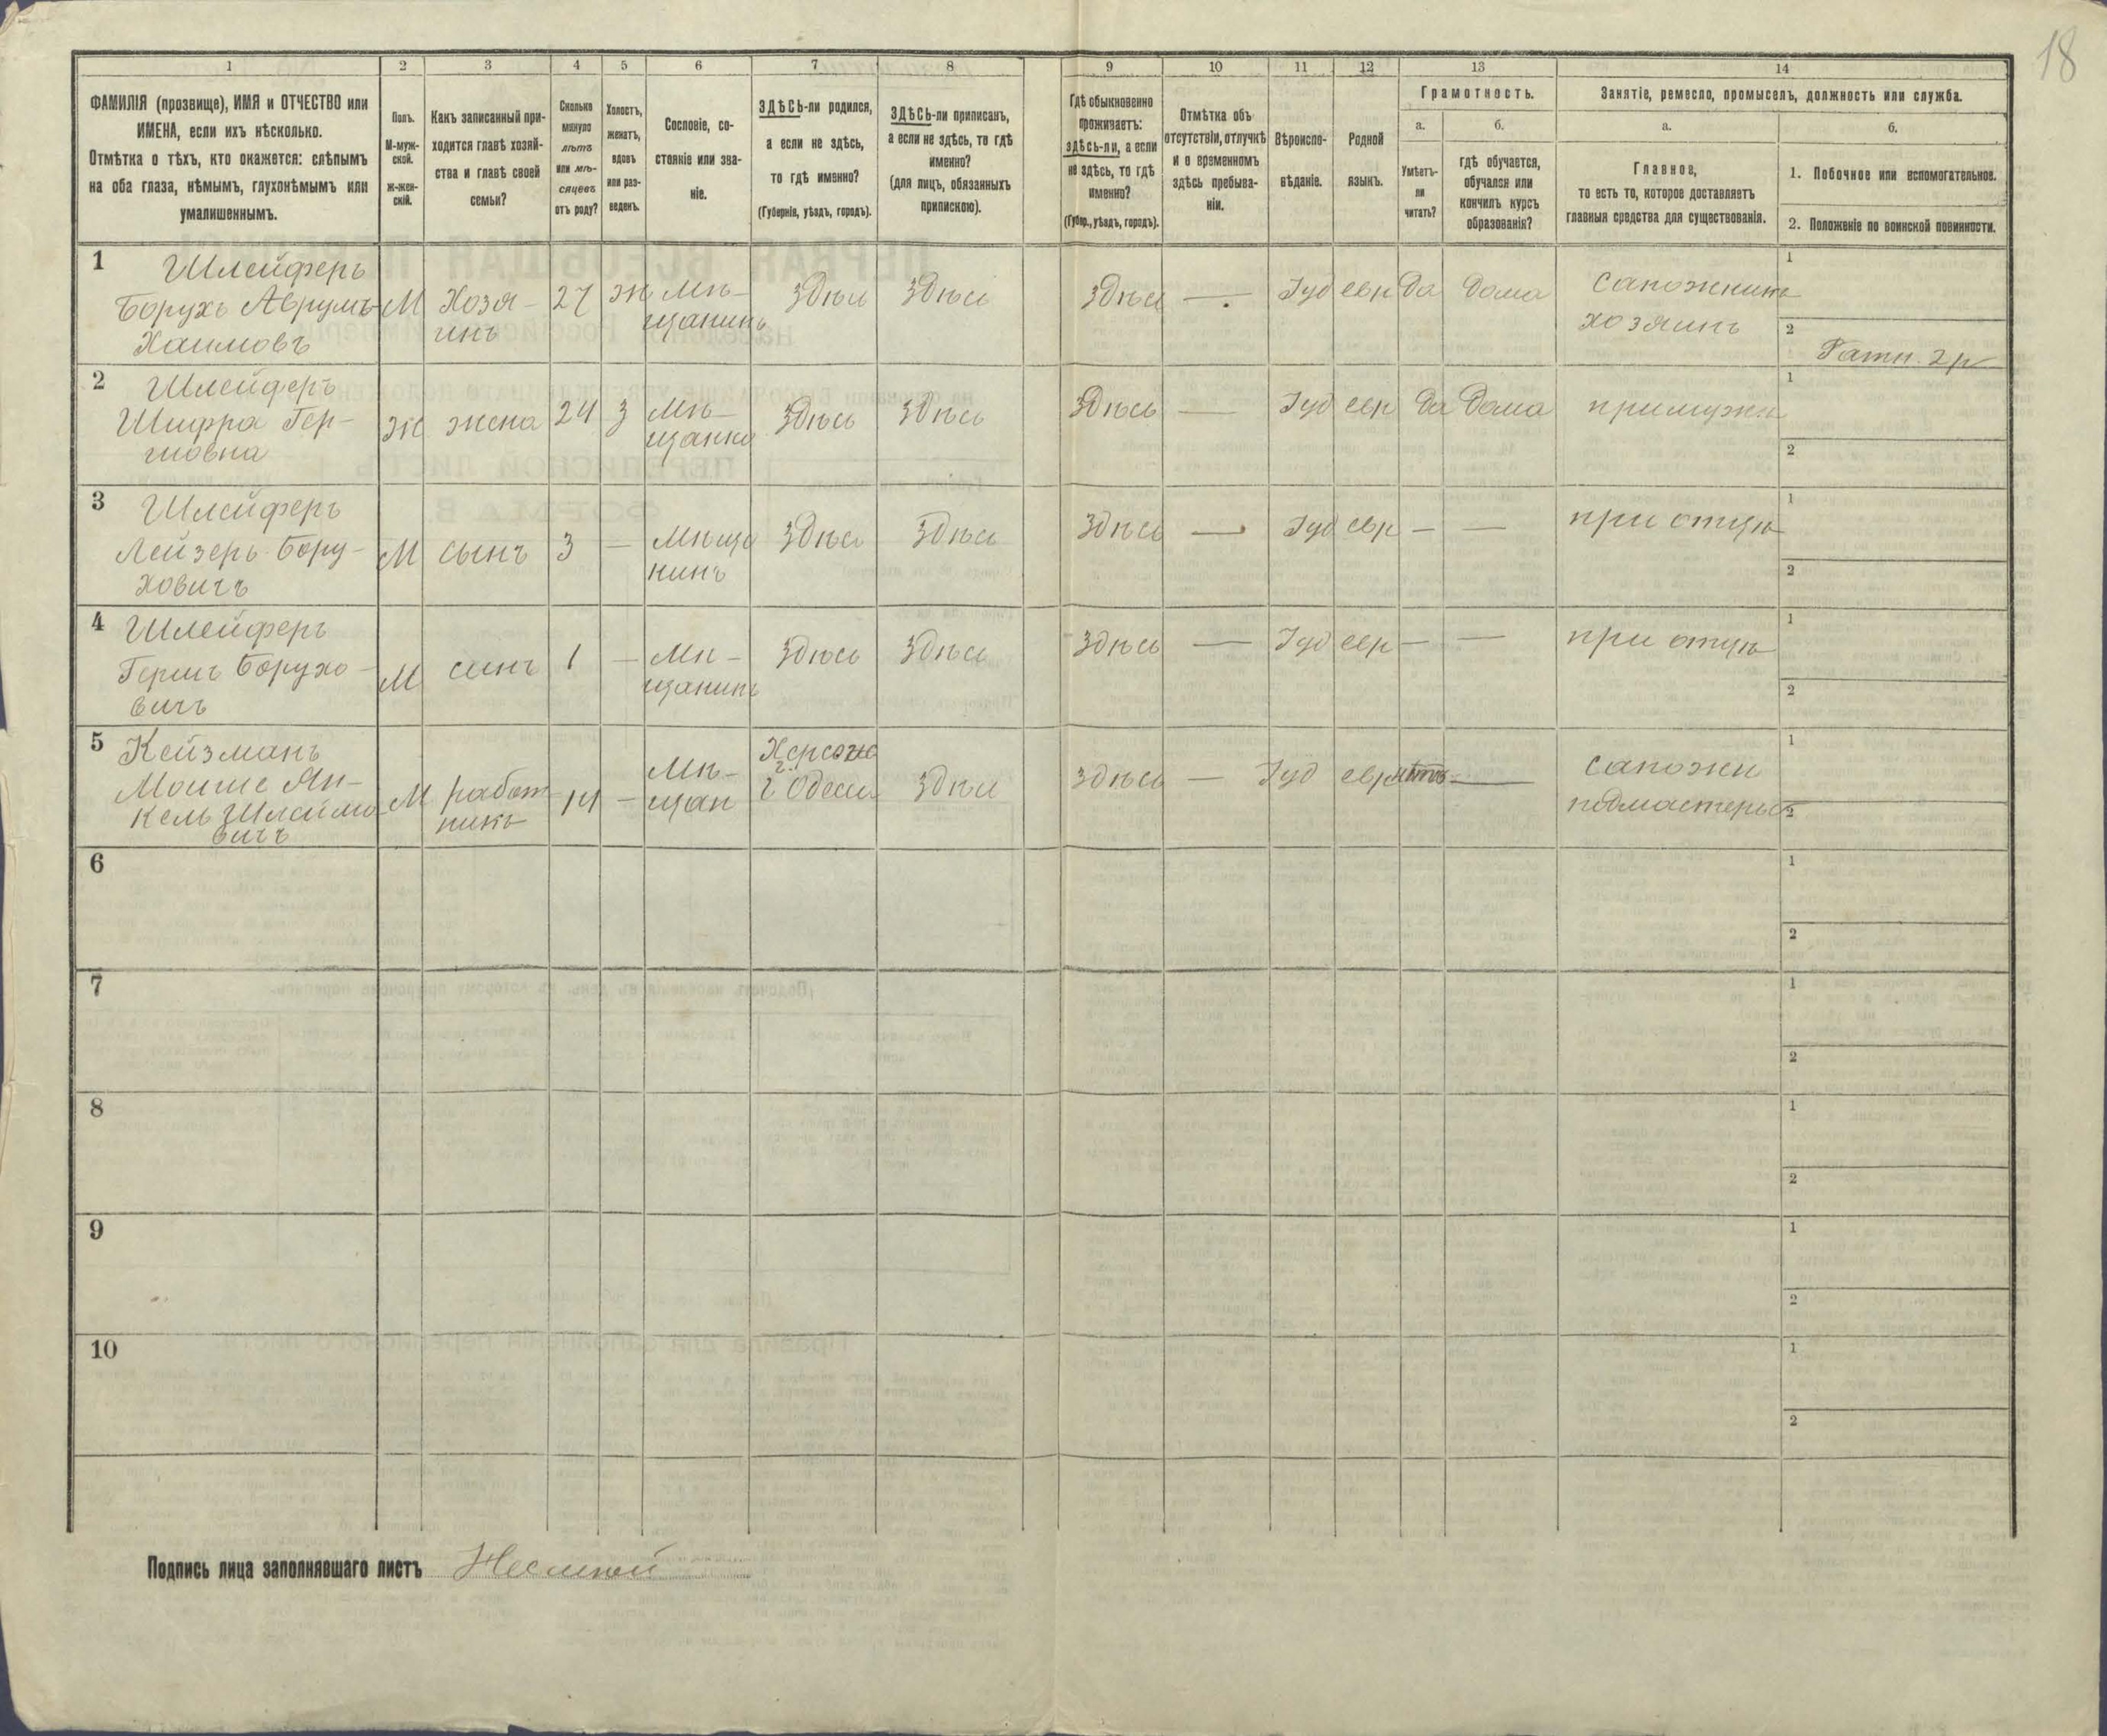 18
1 2 3 4 5 6 7 8 9 10 11 12 13 14
ФАМИЛІЯ (прозвище), ИМЯ и ОТЧЕСТВО или
ИМЕНА, если ихъ нѣсколько.
Отмѣтка о тѣхъ, кто окажется: слѣпымъ
на оба глаза, нѣмымъ, глухонѣмымъ или
умалишеннымъ.
Полъ.
М-муж-
ской.
ж-жен-
скій.
Какъ записанный при-
ходится главѣ хозяй-
ства и главѣ своей
семьи?
Сколько
минуло
лѣтъ
или мѣ-
сяцевъ
отъ роду?
Холостъ,
женатъ,
вдовъ
или раз-
веденъ.
Сословіе, со-
стояніе или зва-
ніе.
ЗДѢСЬ-ли родился,
а если не здѣсь,
то гдѣ именно?
(Губернія, уѣздъ, городъ).
ЗДѢСЬ-ли приписанъ,
а если не здѣсь, то гдѣ
именно?
(для лицъ, обязанныхъ
припискою).
Гдѣ обыкновенно
проживаетъ:
здѣсь-ли, а если
не здѣсь, то гдѣ
именно?
(Губер., уѣздъ, городъ).
Отмѣтка объ
отсутствіи, отлучкѣ
и о временномъ
здѣсь пребыва-
ніи.
Вѣроиспо-
вѣданіе.
Родной
языкъ.
Грамотность.
а.
Умѣетъ-
ли
читать?
б.
гдѣ обучается,
обучался или
кончилъ курсъ
образованія?
Занятіе, ремесло, промыселъ, должность или служба.
а.
Главное,
то есть то, которое доставляетъ
главныя средства для существованія.
б.
1. Побочное или вспомогательное.
2. Положеніе по воинской повинности.
1 Шлейферъ
Борухъ Аврумъ-
Хаимовъ
М
Хозя-
инъ
27
ж
Мѣ-
щанинъ
Здѣсь
Здѣсь
Здѣсь
—
Іуд
евр
да
дома
сапожникъ
хозяинъ
1
2
Ратн. 2 р
2 Шлейферъ
Шифра Гер-
шовна
ж
жена
24
з
Мѣ-
щанка
Здѣсь
Здѣсь
Здѣсь
—
Іуд
евр
да
дома
при мужѣ
1
2
3 Шлейферъ
Лейзеръ Бору-
ховичъ
М
сынъ
3
—
Мѣща
нинъ
Здѣсь
Здѣсь
Здѣсь
—
Іуд
евр
—
—
при отцѣ
1
2
4 Шлейферъ
Гершъ Борухо-
вичъ
М
синъ
1
—
Мѣ-
щанинъ
Здѣсь
Здѣсь
Здѣсь
—
Іуд
евр
—
—
при отцѣ
1
2
5 Кейзманъ
Моише Ян-
кель Шлеймо
вичъ
М
работ
никъ
14
—
Мѣ-
щан
г. Одесса
Здѣсь
Здѣсь
—
Іуд
евр
нѣтъ
—
сапожн
подмастерье
1
2
6
1
2
7
1
2
8
1
2
9
1
2
10
1
2
Подпись лица заполнявшаго листъ